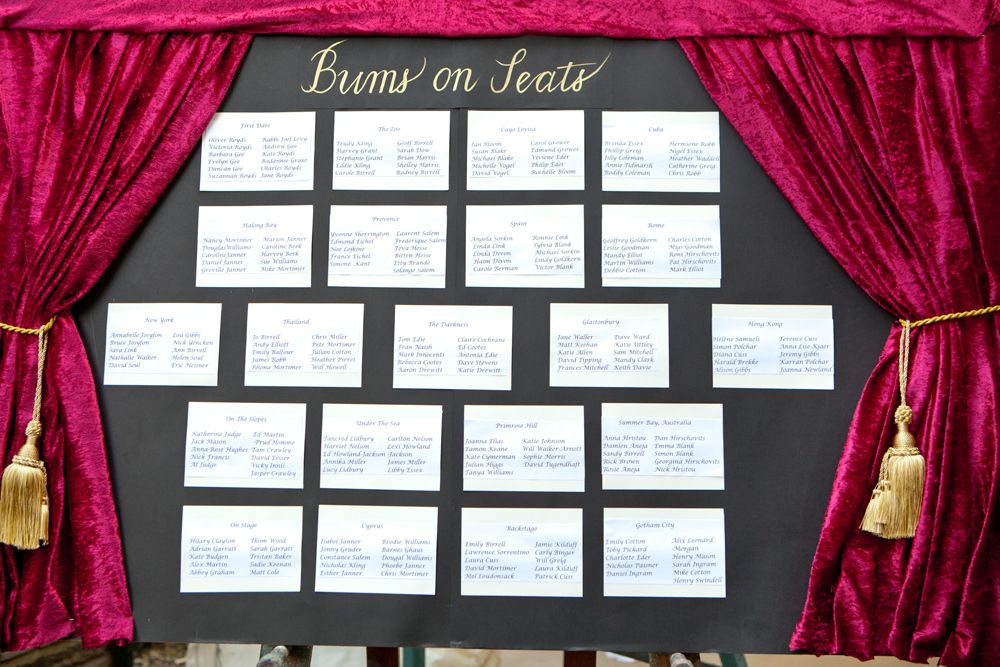 Bums on Seats
First Date
Oliver Royds
Victoria Royds
Barbara Gee
Evelyn Gee
Duncan Gee
Suzannah Royds
Rabbi Joel Levy
Andrew Gee
Kate Royds
Badannie Grant
Charles Royds
Jane Royds
The Zoo
Trudy Kling
Harvey Grant
Stephanie Grant
Eddie Kling
Carole Birrell
Geoff Birrell
Sarah Dow
Brian Harris
Shelley Harris
Rodney Birrell
Cayo Levisa
Ian Bloom
Susan Blake
Michael Blake
Michelle Vogel
David Vogel
Carol Grower
Edmund Grower
Veviene Eder
Philip Eder
Rochelle Bloom
Cuba
Brenda Essex
Phillip Greig
Jilly Coleman
Annie Tidmarsh
Roddy Coleman
Hermione Robb
Nigel Essex
Heather Waddell
Catherine Greig
Chris Robb
Maling Bay
Nancy Mortimer
Douglas Williams
Caroline Janner
Daniel Janner
Greville Janner
Marion Janner
Caroline Berk
Harvey Berk
Sue Williams
Mike Mortimer
Provence
Yvonne Sherrington
Edmond Eichel
Noe Loskine
France Eichel
Simone Kant
Laurent Salem
Frederique Salem
Teva Hesse
Bitten Hesse
Etty Brandé
Solange Salem
Spain
Angela Sorkin
Linda Link
Linda Dixon
Haim Dixon
Carole Berman
Ronnie Link
Sylvia Blank
Michael Sorkin
Lindy Goldkorn
Victor Blank
Rome
Geoffrey Goldkorn
Leslie Goodman
Mandy Elliot
Martin Williams
Debbie Cotton
Charles Cotton
Mips Goodman
Roni Hirschovits
Pat Hirschovits
Mark Elliot
New York
Annabelle Joryfon
Bruce Joryfon
Sara Link
Nathalie Walker
David Soul
Lou Gibbs
Nick Yencken
Ann Birrell
Helen Soul
Eric Neisner
Thailand
Jo Birrell
Andy Elliott
Emily Balfour
James Robb
Fhona Mortimer
Chris Miller
Pets Mortimer
Julian Cotton
Heather Pirret
Will Howell
The Darkness
Tom Edie
Fran Naish
Mark Innocenti
Rebecca Cootes
Aaron Drewitt
Claire Cochrane
Ed Cootes
Antonia Edie
Dave Stevens
Katie Drewitt
Glastonbury
Jane Waller
Matt Keehan
Katie Allen
David Tipping
Frances Mitchell
Dave Ward
Katie Uttley
Sam Mitchell
Mandy Clark
Keith Davie
Hong Kong
Hélène Samuels
Simon Polchar
Diana Cuss
Harald Brekke
Alison Gibbs
Terence Cuss
Anna Lise Kjaer
Jeremy Gibbs
Karran Polchar
Joanna Newland
On The Slopes
Katherine Judge
Jack Mason
Anna-Rose Hughes
Nick Francis
Al Judge
Ed Martin
Prud'Homme
Tam Crawley
David Erixer
Vicky Innis
Jasper Crawley
Under The Sea
Tancred Lidbury
Harriet Nelson
Ed Howland-Jackson
Annika Miller
Lucy Lidbury
Carlton Nelson
Lexi Howland
Jackson
James Miller
Libby Essex
Primrose Hill
Joanna Elias
Eamon Keane
Kate Cymerman
Julian Higgs
Tanya Williams
Katie Johnson
Will Walker-Arnott
Sophie Morris
David Tugendhaft
Summer Bay, Australia
Anna Hristou
Damien Aneja
Sandy Birrell
Rick Brown
Rosie Aneja
Dan Hirschovits
Emma Blank
Simon Blank
Georgina Hirschovits
Nick Hristou
On Stage
Hilary Clayton
Adrian Garratt
Kate Budgen
Alex Martin
Abbey Graham
Thom Wood
Sarah Garratt
Tristan Baker
Sadie Keenan
Matt Cole
Cyprus
Isabel Janner
Jonny Gruder
Constance Salem
Nicholas Kling
Esther Janner
Brodie Williams
Barnes Ghaui
Dougal Williams
Phoebe Janner
Chris Mortimer
Backstage
Emily Birrell
Lawrence Sorrentino
Laura Cuss
David Mortimer
Mel Loudonsack
Jamie Kilduff
Carly Binger
Will Greig
Laura Kilduff
Patrick Cuss
Gotham City
Emily Cotton
Toby Pickard
Charlotte Eder
Nicholas Pausner
Daniel Ingram
Alix Leonard
Morgan
Henry Mason
Sarah Ingram
Mike Cotton
Henry Swindell